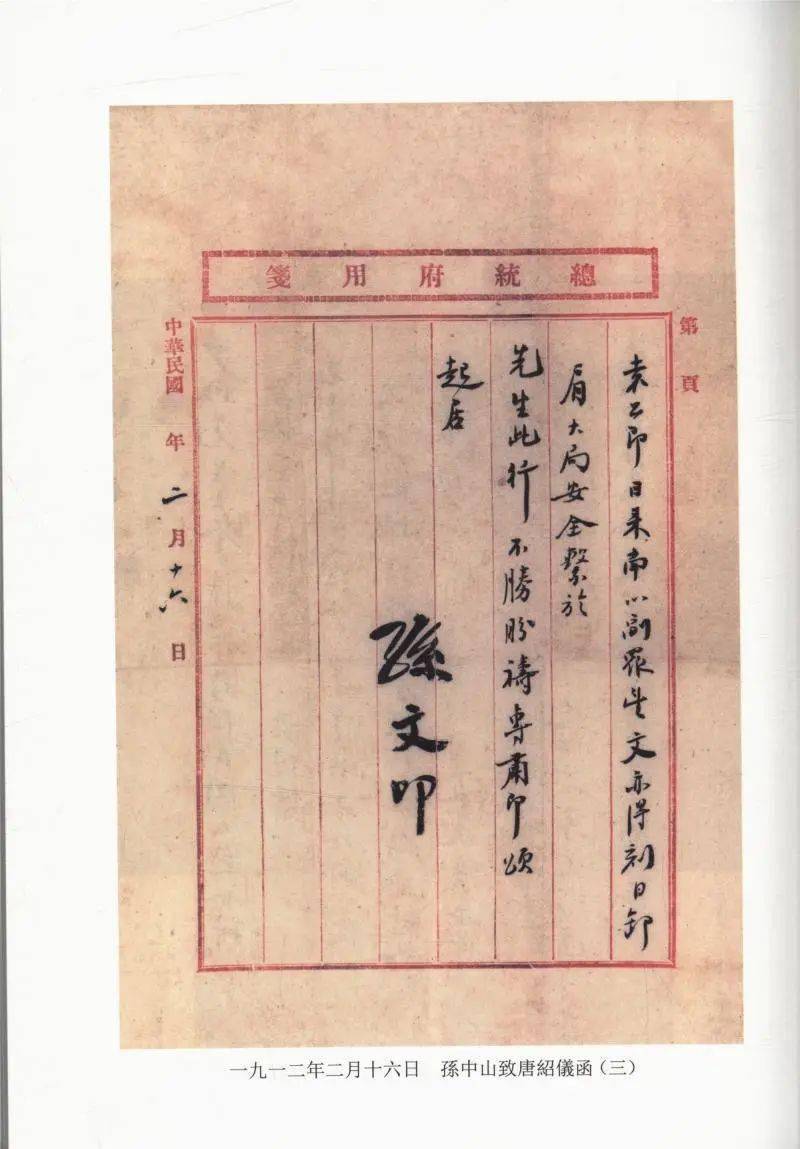 總統府用箋
第 頁
袁公即日来南以副眾望文亦得刻日卸
肩大局安全繫於
先生此行不勝盼禱專肅即頌
起居
孫文叩
中華民國 年二月十六日
一九一二年二月十六日 孫中山致唐紹儀函（三）